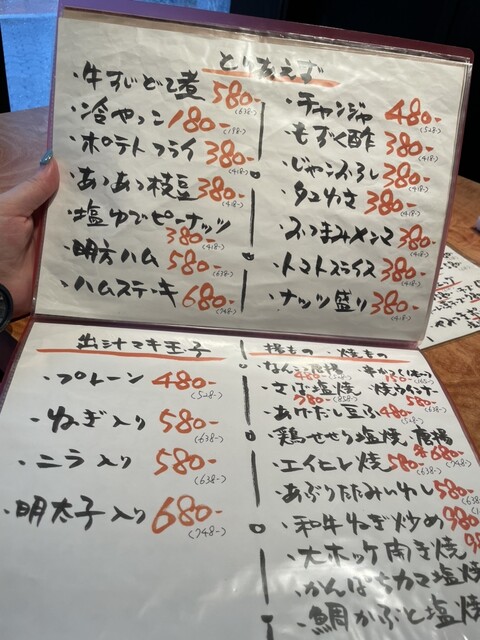 とりあえず
・牛すじどて煮 580- (638-)
・冷やっこ 180- (198-)
・ポテトフライ 380- (418-)
・あつあつ枝豆 380- (418-)
・塩ゆでピーナッツ
380- (418-)
・明方ハム 580- (638-)
・ハムステーキ 680- (748-)
・チャンジャ 480- (528-)
・もずく酢 380- (418-)
・じゃこおろし 380- (418-)
・タコわさ 380- (418-)
・おつまみメンマ 380- (418-)
・トマトスライス 380- (418-)
・ナッツ盛り 380- (418-)
出汁マキ玉子
・プレーン 480- (528-)
・ねぎ入り 580- (638-)
・ニラ入り 580- (638-)
・明太子入り 680- (748-)
揚もの・焼もの
・なんこつ唐揚 串かつ(1本)
480- 150- (165-)
・さば塩焼 ・焼ウインナー
780- (858-) 580- (638-)
・あげだし豆ふ 480- (528-)
・鶏せせり塩焼・唐揚
各680- (748-)
・エイヒレ焼 580- (638-)
・あぶりたたみいわし 580- (638-)
・和牛ねぎ炒め 980-
・大ホッケ開き焼
・かんぱちカマ塩焼
・鯛かぶと塩焼